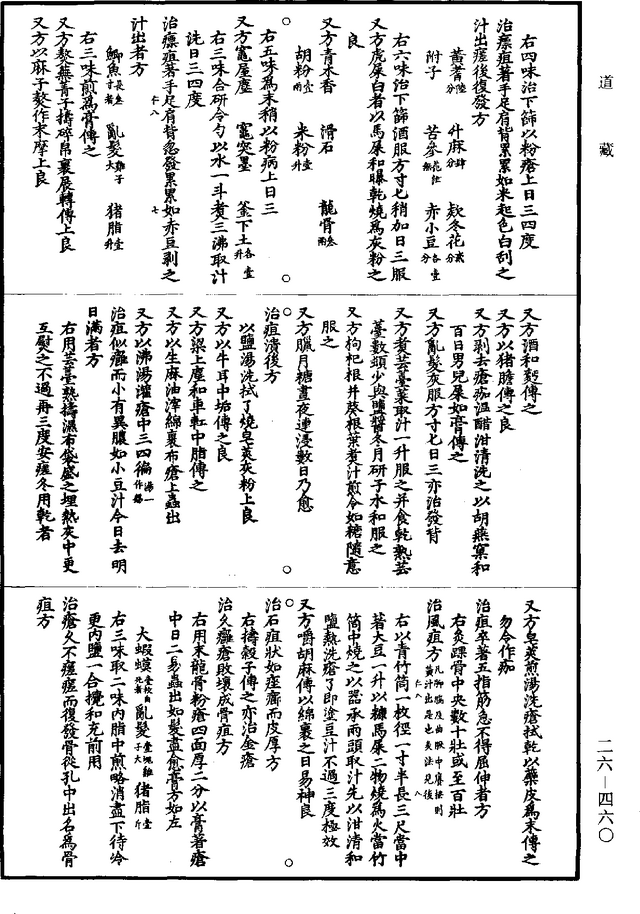 道藏
右四味治下篩以粉瘡上日三四度
治瘭疽著手足肩背累累如米起色白刮之
汁出瘥後復發方
黃蓍六分 升麻四分 欵冬花
附子 苦參 赤小豆各壹分
右六味治下篩酒服方寸七稍加日三服
又方虎屎白者以馬屎和曝乾燒為灰粉之
良
又方青木香 滑石 龍骨叁兩
胡粉壹兩 米粉壹升
右五味為末稍以粉病上日三
又方竈屋塵 竈突墨 釜下土各壹升
右三味合研令勻以水一斗煮三沸取汁
洗日三四度
治瘭疽著手足肩背忽發累累如赤豆剥之
汁出者方
鯽魚長叁寸者 亂髮雞子大 猪脂壹升
右三味煎為膏傅之
又方熬蕪菁子擣碎帛裹展轉傅上良
又方以麻子熬作末摩上良
又方酒和麪傅之
又方以猪膽傅之良
又方剥去瘡痂温醋泔清洗之以胡燕窠和
百日男兒屎如膏傅之
又方亂髮灰服方寸七日三亦治發背
又方煮芸薹菜取汁一升服之并食乾熟芸
薹數頓少與鹽醬冬月研子水和服之
又方枸杞根并葵根葉煮汁煎令如糖隨意
服之
又方臘月糖晝夜連浸數日乃愈
治疽潰後方
以鹽湯洗拭了燒皂莢灰粉上良
又方以牛耳中垢傅之良
又方梁上塵和車䡅中脂傅之
又方以生麻油滓綿裹布瘡上蟲出
又方以沸湯灌瘡中三四徧湯一作餳
治疽似癰而小有異膿如小豆汁今日去明
日滿者方
右用芸薹熟擣濕布袋盛之埋熱灰中更
互熨之不過再三度安瘥冬用乾者
又方皂莢煎湯洗瘡拭乾以藥皮為末傅之
勿令作痂
治疽卒著五指筋急不得屈伸者方
右灸踝骨中央數十壯或至百壯
治風疽方
右以青竹筒一枚徑一寸半長三尺當中
著大豆一升以糠馬屎二物燒為火當竹
筒中燒之以器承兩頭取汁先以泔清和
鹽熱洗瘡了即塗豆汁不過三度極效
又方嚼胡麻傅以綿裹之日易神良
治石疽狀如痤癤而皮厚方
右擣穀子傅之亦治金瘡
治久癰瘡敗壞成骨疽方
右用末龍骨粉瘡四面厚二分以膏著瘡
中日二易蟲出如髮盡愈膏方如左
大蝦蟆壹枚自死者 亂髮壹塊雞子大 猪脂壹斤
右三味取二味内脂中煎略消盡下待冷
更内鹽一合攪和充前用
治瘡久不瘥瘥而復發骨從孔中出名為骨
疽方
二六—四六〇